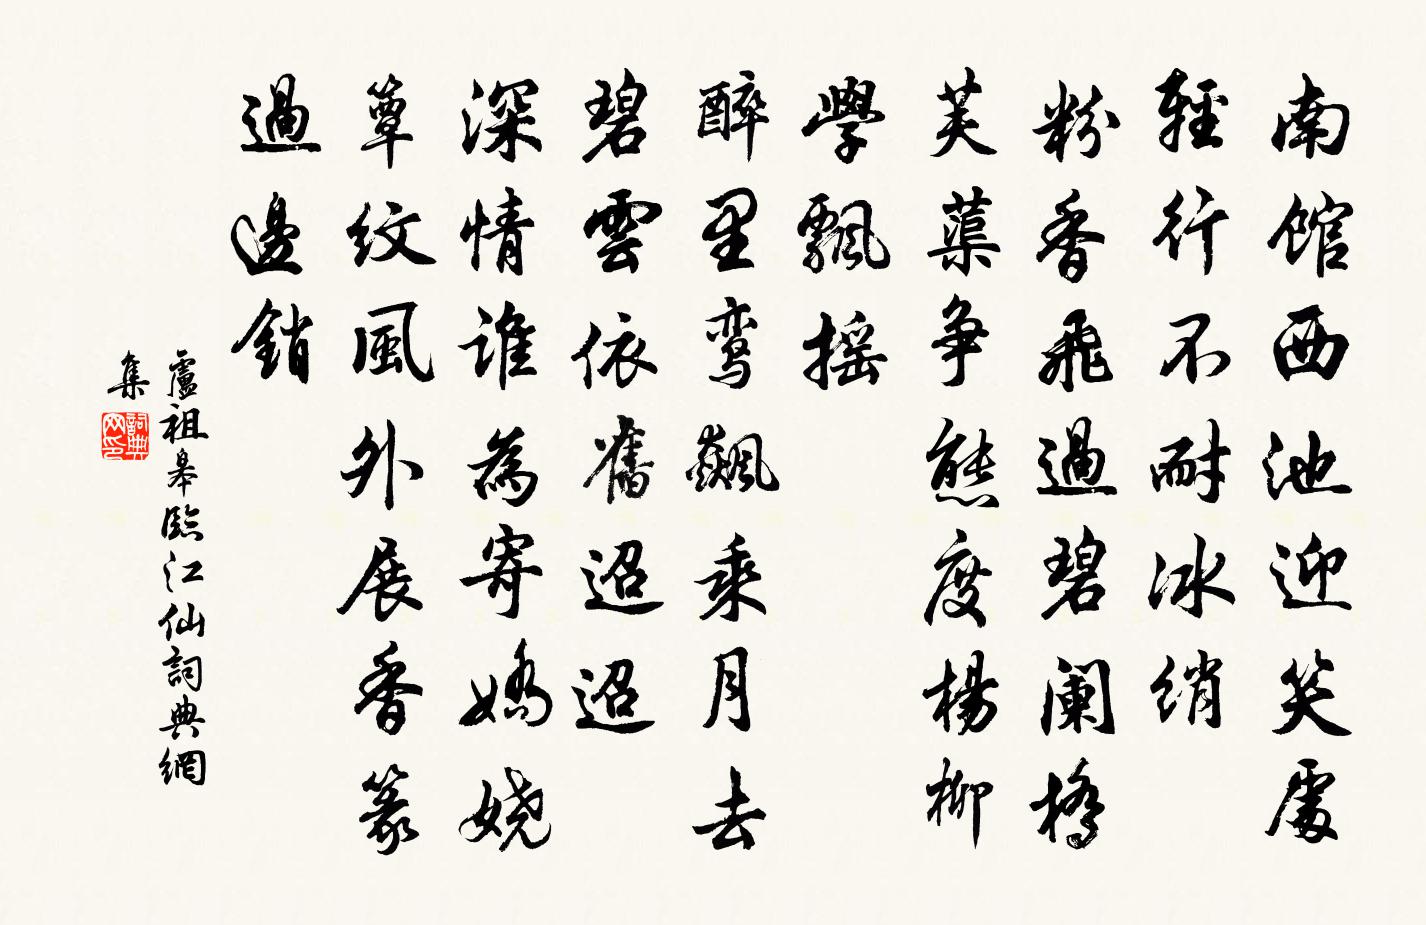 南馆西池迎笑處
輕行不耐冰绡
粉香飛過碧阑橋
芙蕖争態度楊柳
學飄摇
醉里鸾飆乘月去
碧雲依舊迢迢
深情谁為寄嬌娆
簟纹風外展香篆
過邊銷
盧祖皋臨江仙詞典網
集
詞典网印